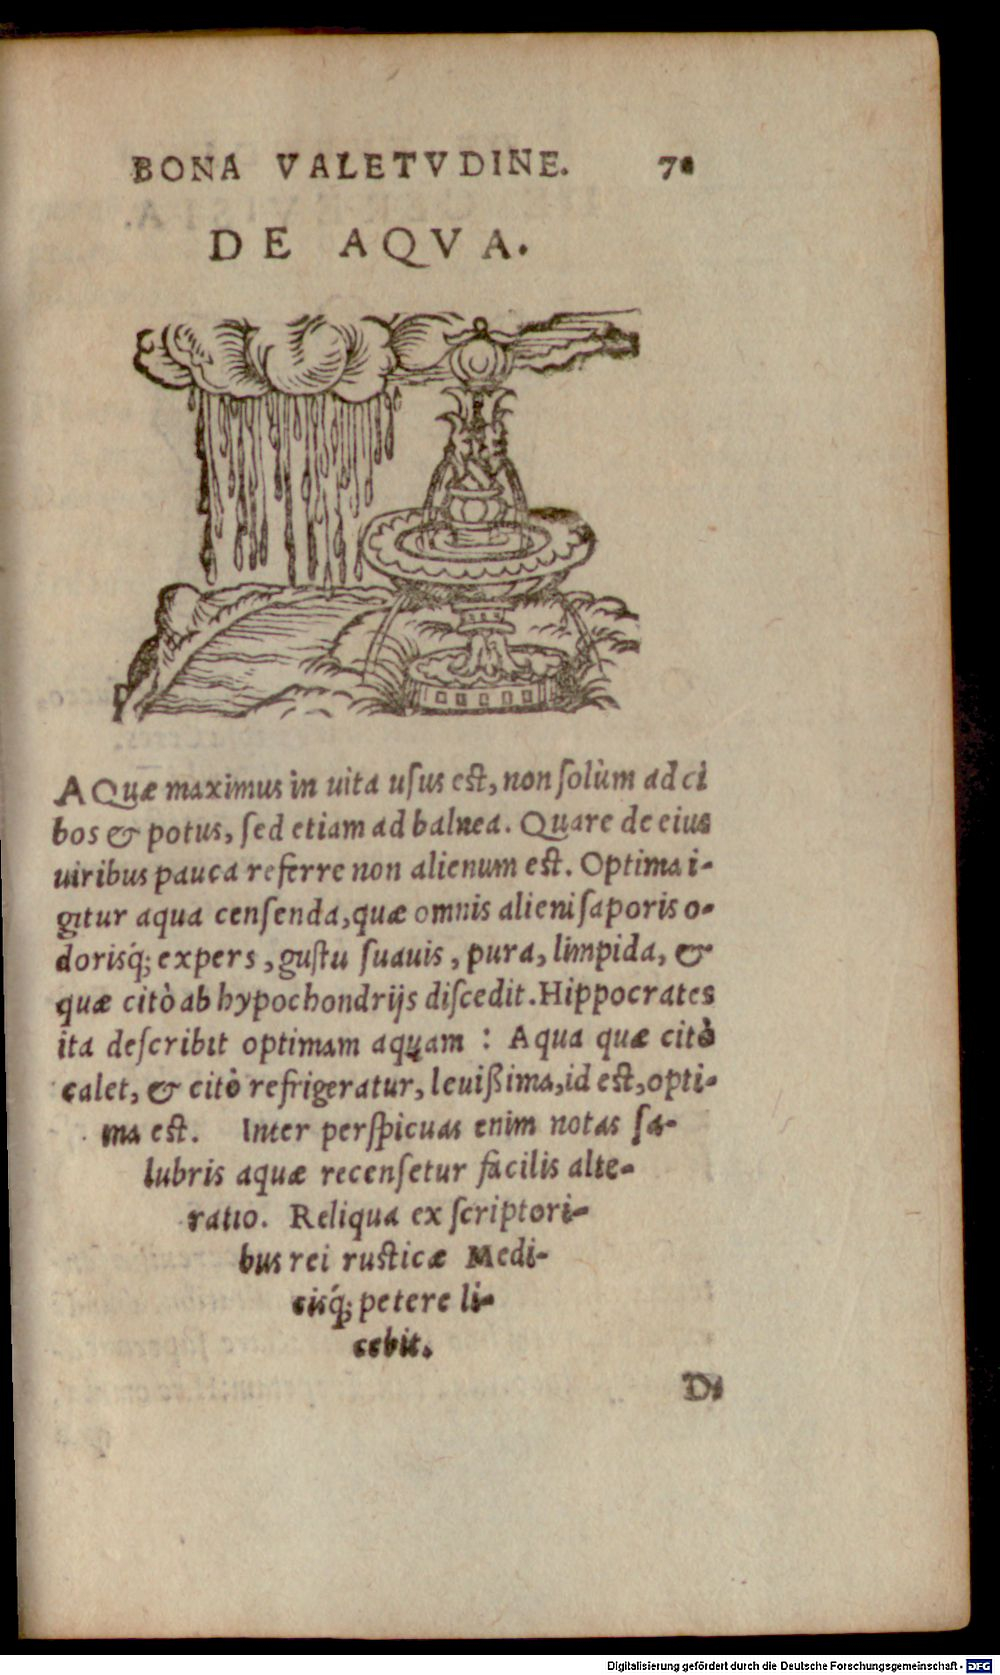 BONA VALETVDINE.
DE AQVA.
AQuæ maximus in uita usus est, non solùm ad ci
bos & potus, sed etiam ad balnea. Quare de eius
uiribus pauca referre non alienum est. Optima i-
gitur aqua censenda, quæ omnis alieni saporis o-
dorisq́; expers, gustu suauis, pura, limpida, &
quæ citò ab hypochondrijs discedit. Hippocrates
ita describit optimam aquam : Aqua quæ citò
calet, & citò refrigeratur, leuißima, id est, opti-
ma est. Inter perspicuas enim notas sa-
lubris aquæ recensetur facilis alte-
ratio. Reliqua ex scriptori-
bus rei rusticæ Medi-
cisq́; petere li-
cebit.
Digitalisierung gefördert durch die Deutsche Forschungsgemeinschaft - DFG